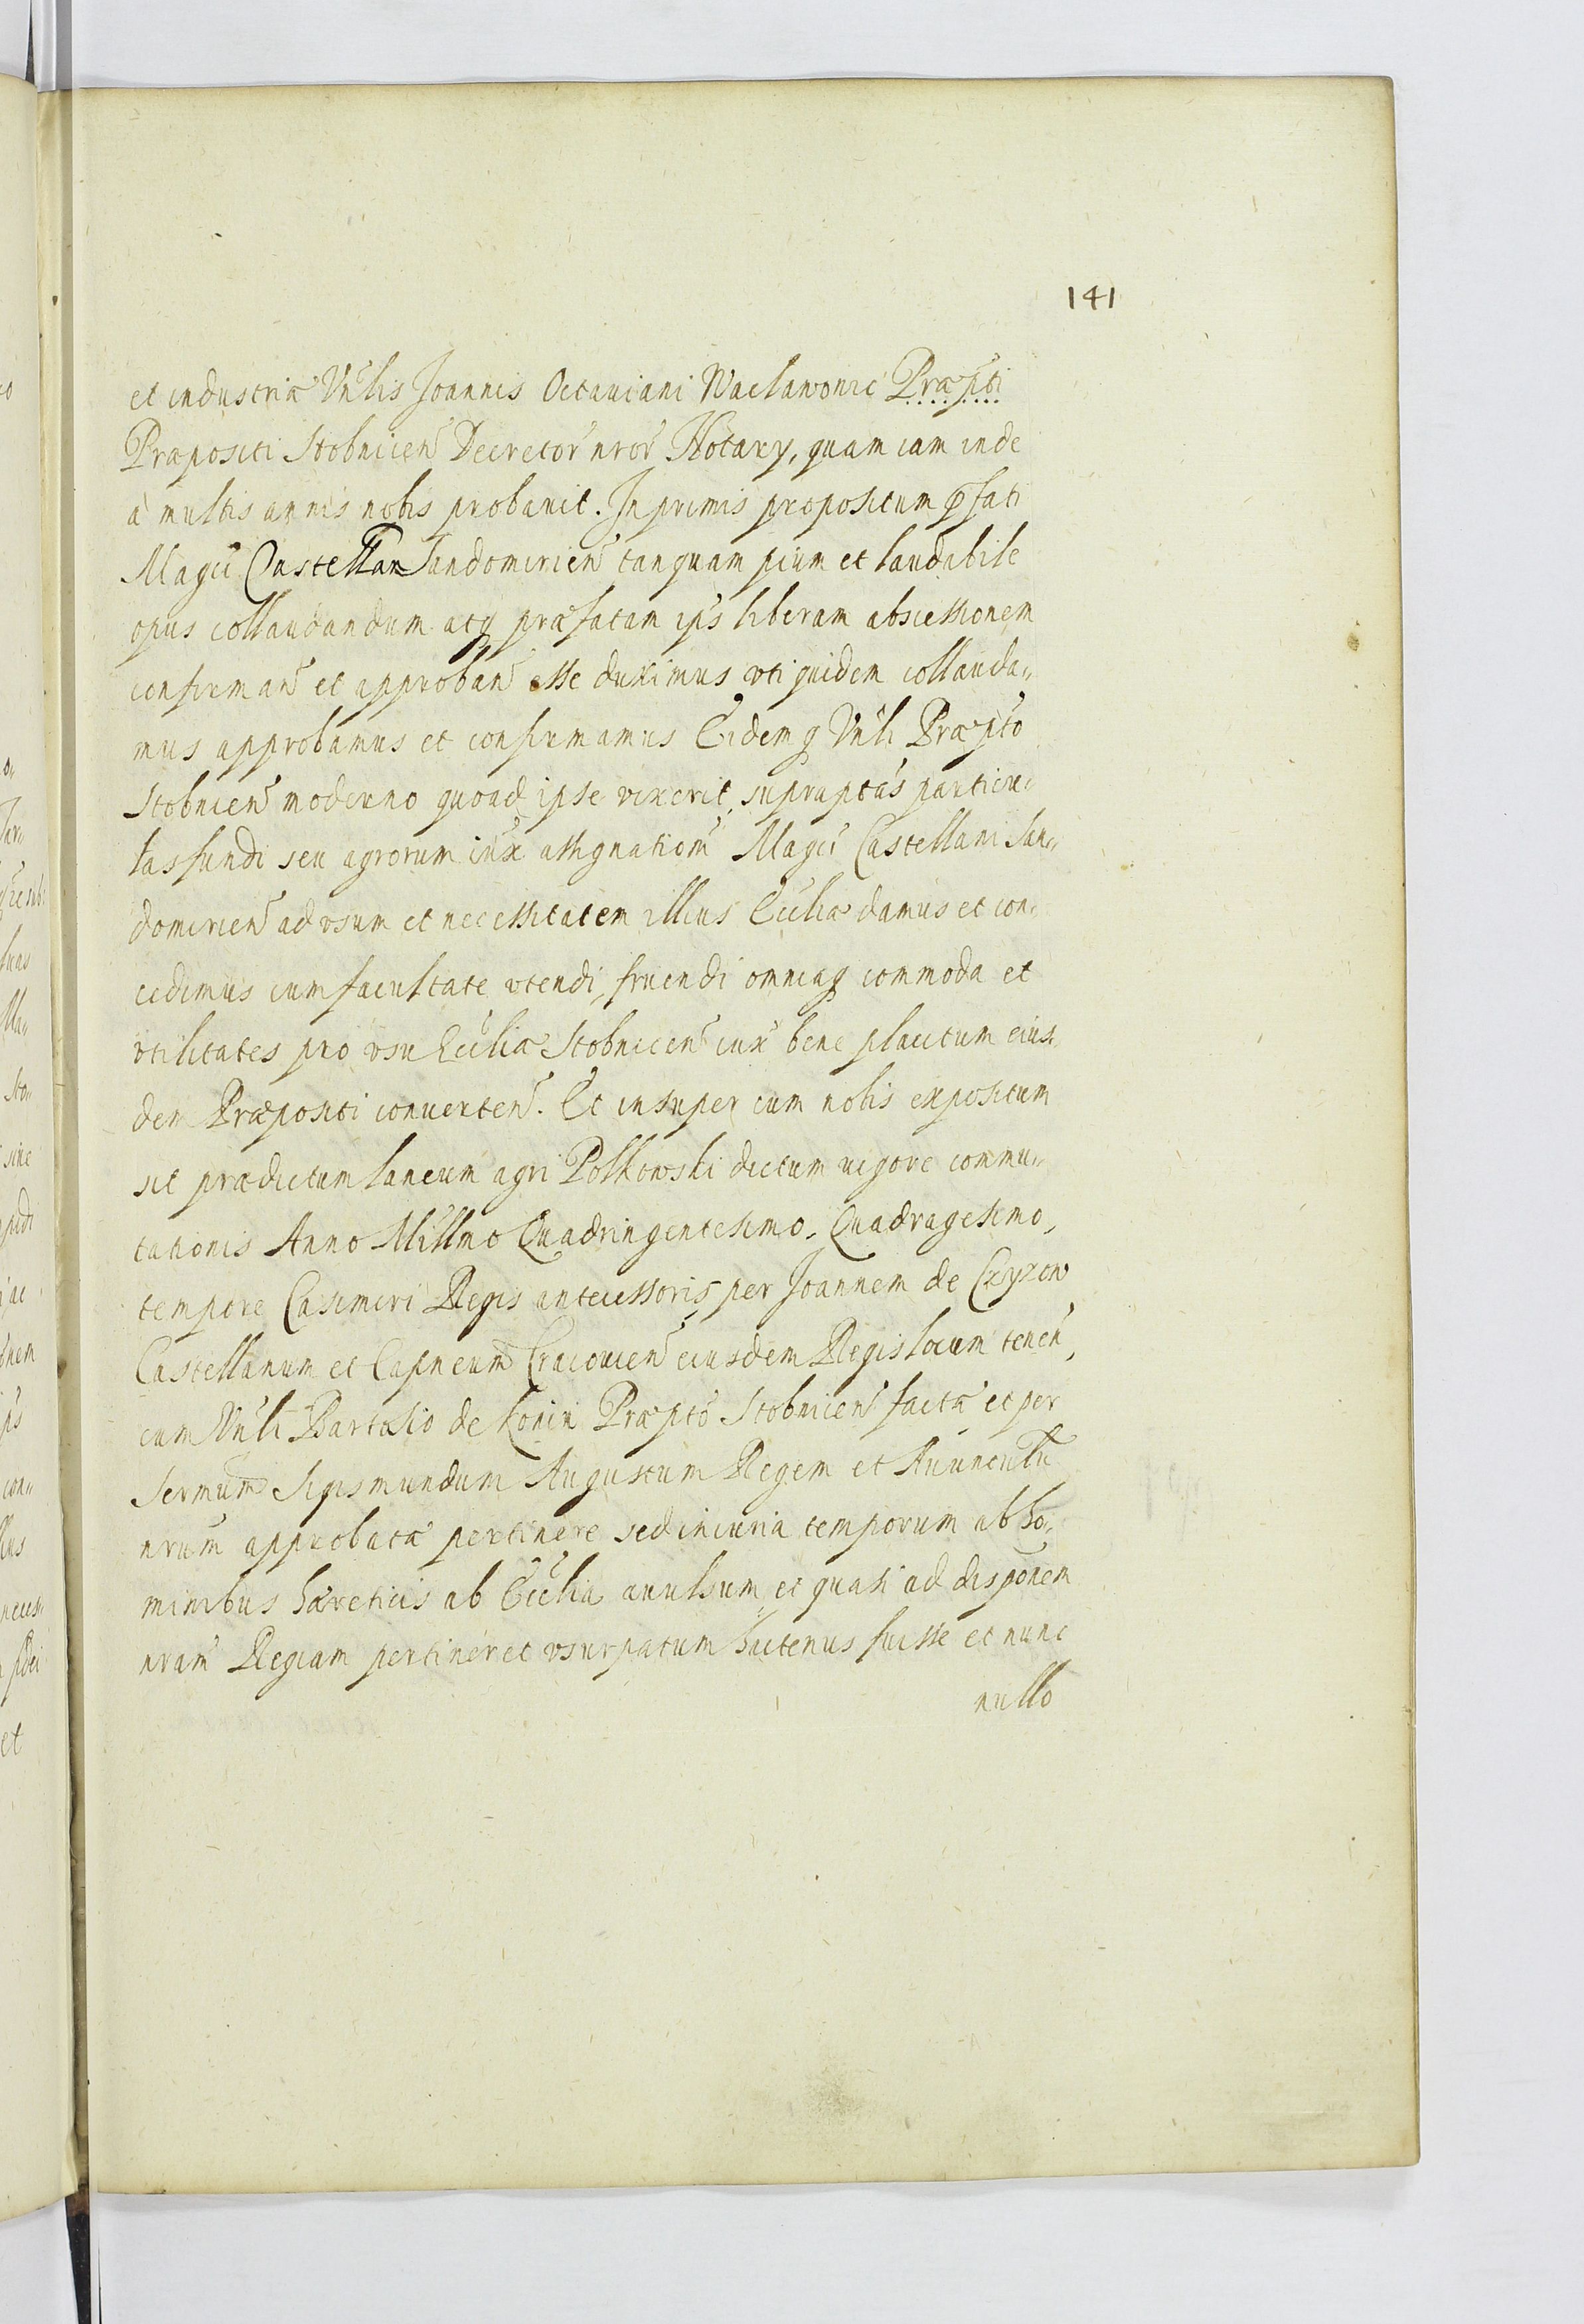 141
et industria Vnlis Joannis Octauiani Waclawonic Præpti
Præpositi Stobnicen Decretor nror Notary, quam iam inde
à multis annis nobis probauit. Inprimis propositum pfati
Magci Castellan Sandomirien tanquam pium et laudabile
opus collaudandum atq præfatam ips liberam abscessionem
confirman et approban esse duximus vti quidem collauda„
mus approbamus et confirmamus Eidemq Vnli Præpto
Stobnicen moderno quoad ipse vixerit, supraptas particu„
las fundi seu agrorum iux assignatiom Magci Castellani San„
domirien ad vsum et necessitatem illius Ecclia damus et con„
cedimus cum facultate vtendi, fruendi omniaq commoda et
vtilitates pro vsu Ecclia Stobnicen iux bene placitum eius„
dem Præpositi conuerten. Et insuper cum nobis expositum
sit prædictum laneum agri Polkowski dictum uigore commu„
tationis Anno Millmo Quadringentesimo, Quadragesimo,
tempore Casimiri Regis antecessoris per Joannem de Czyzow
Castellanum et Capneum Cracouien eiusdem Regis locum tenen,
cum Vnli Bartolio de Konin Præpto Stobnicen facta et per
Sermum Sigismundum Augustum Regem et Auunculu
nrum approbata pertinere sed iniuria temporum ab ho„
minibus hæreticis ab Ecclia auulsum et quasi ad disponem
nram Regiam pertineret vsurpatum hactenus fuisse et nunc
nullo